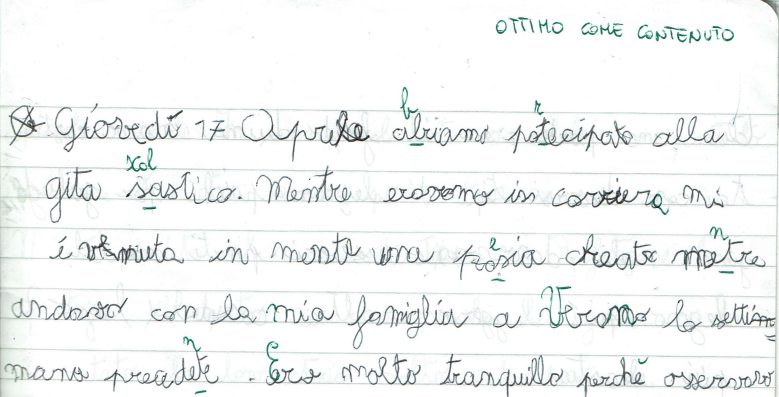 OTTIMO COME CONTENUTO
Giovedì 17 Aprile abriamo potecipato alla
gita sastica. Mentre eravamo in corriera mi
é venuta in mente una posia creata metre
andavo con la mia famiglia a Verona la setti=
mana precedete. Ero molto tranquillo perché osservavo